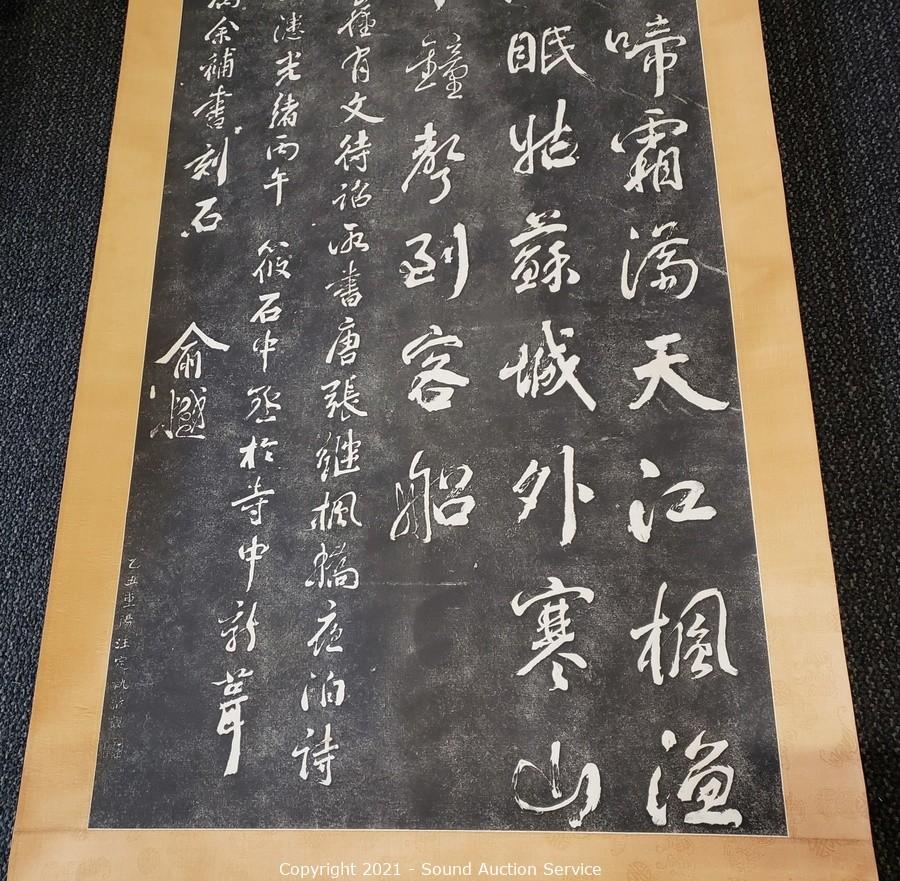 啼霜滿天江楓漁
眠姑蘇城外寒山
鐘聲到客船
舊有文待詔所書唐張繼楓橋夜泊詩
漶光緒丙午 筱石中丞於寺中新葺
屬余補書刻石
俞樾
乙丑重陽汪定執
Copyright 2021 - Sound Auction Service